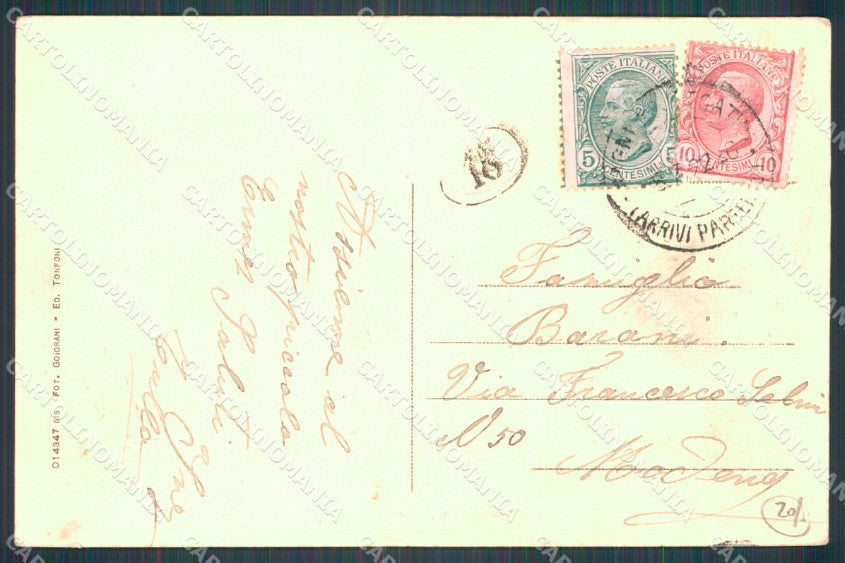 POSTE ITALIANE
5
CENTESIMI
POSTE ITALIANE
10 10
CENTESIMI
(ARRIVI
16
Famiglia
Barani.
Via Francesco Selmi
N 50
Modena
Assieme al
nostro piccolo
Saluti
014347 BIS. FOT. GOIORANI - ED. TONFONI
20/
CARTOLINOMANIA